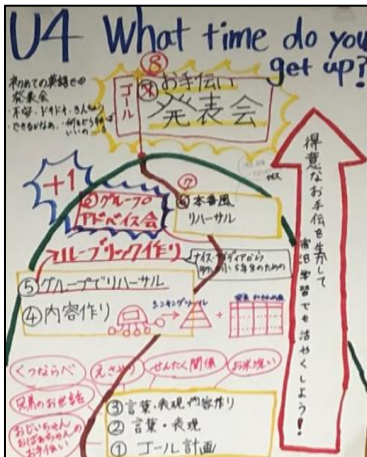 U4 What time do you
get up?
初めての英語での
発表会
・不安・ドキドキ・きんちょう
⑧
ゴール
お手伝い
発表会
+1
⑥グループ
アドバイス会
⑦
本番風
リハーサル
ルーブリック作り
⑤グループでリハーサル
④内容作り
+
くつならべ
えさやり
せんたく関係
お米洗い
兄弟のお世話
おじいちゃん
おばあちゃんの
お手伝い
③言葉・表現・内容作り
②言葉・表現
①ゴール計画
得意なお手伝を生かして
宿泊学習でも活やくしよう!